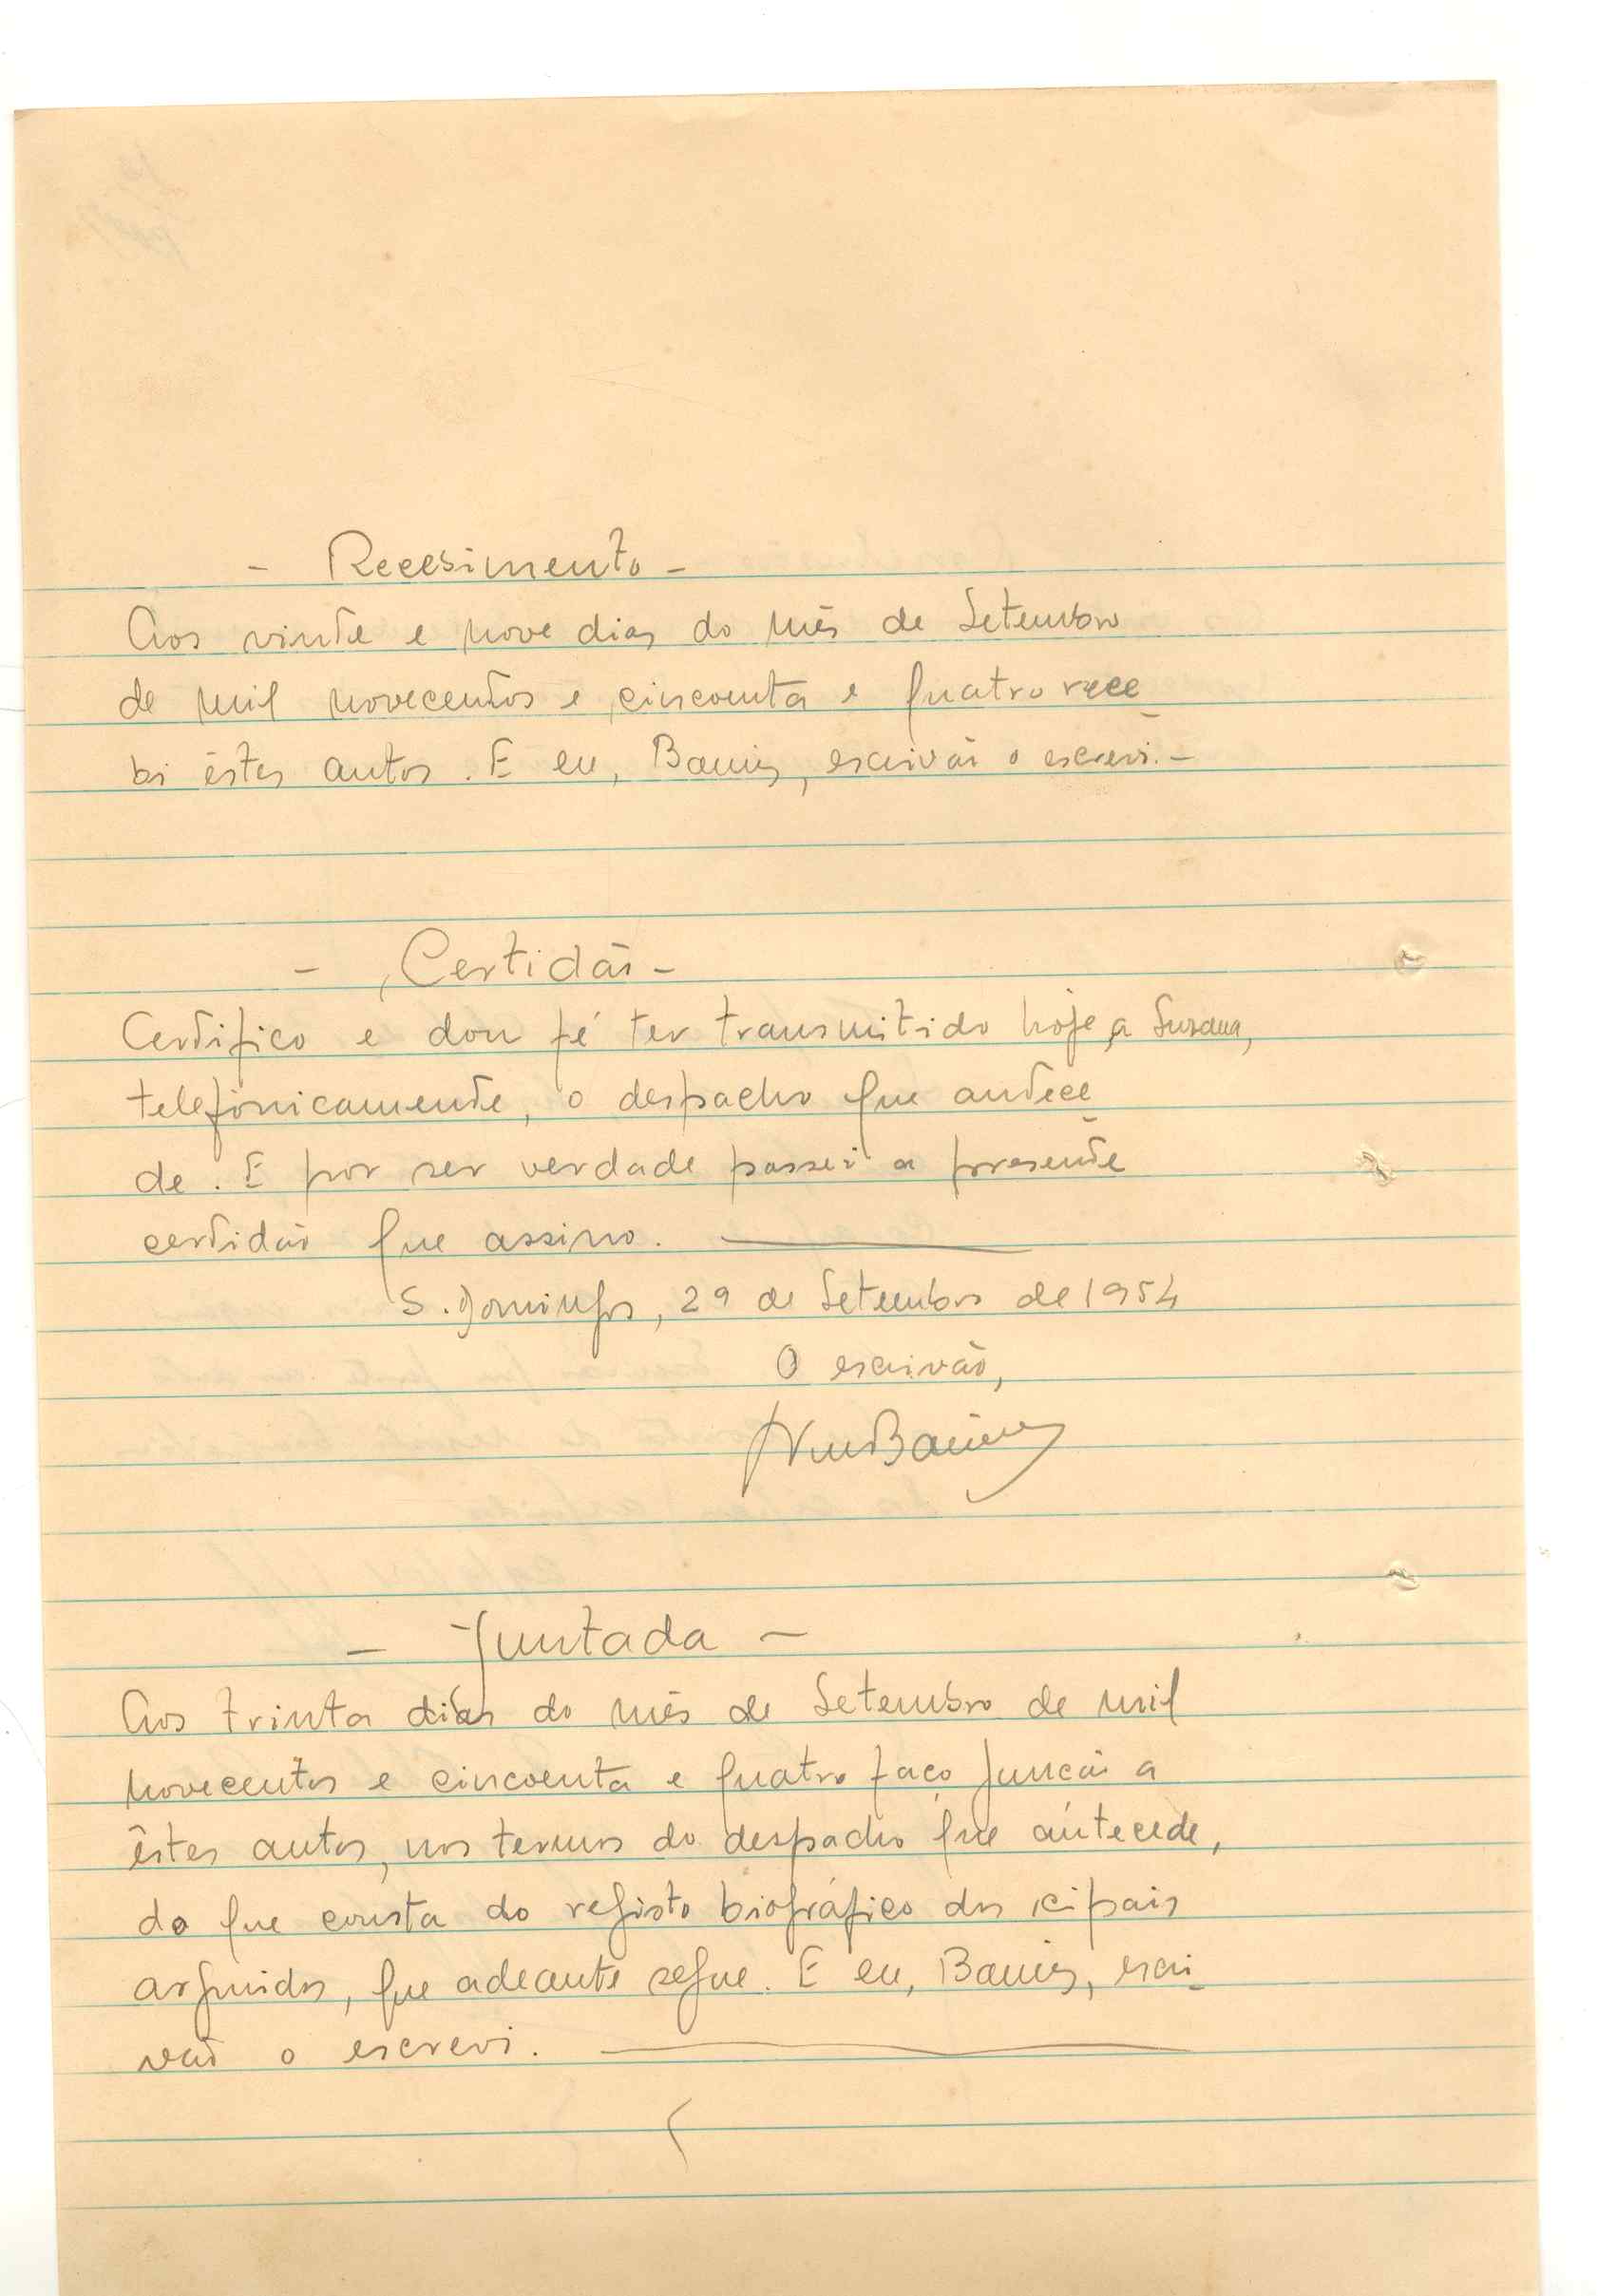 - Recebimento -
Aos vinte e nove dias do mês de Setembro
de mil novecentos e cincoenta e quatro rece
bi êstes autos. E eu, , escrivão o escrevi. -
- Certidão -
Certifico e dou fé ter transmitido hoje, a Suzana,
telefònicamente, o despacho que antece
de. E por ser verdade passei a presente
certidão que assino.
S. Domingos, 29 de Setembro de 1954
O escrivão,
- Juntada -
Aos trinta dias do mês de Setembro de mil
novecentos e cincoenta e quatro faço junção a
êstes autos, nos termos do despacho que antecede,
do que consta do registo biográfico dos cipais
arguidos, que adeante segue. E eu, , escri
vão o escrevi.